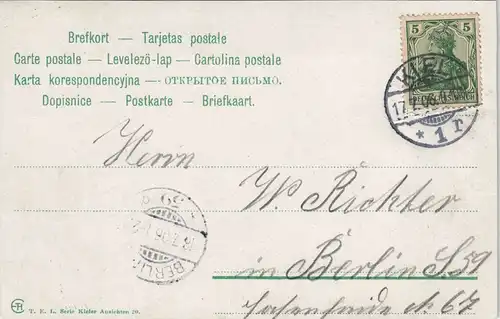 Brefkort — Tarjetas postale
Carte postale — Levelező-lap — Cartolina postale
Karta korespondencyjna — ОТКРЫТОЕ ПИСЬМО.
Dopisnice — Postkarte — Briefkaart.
5 5
KIEL
17.7.06
* 1 r
Herrn
W. Richter
in Berlin S. 59
Hasenheide No 67
BERLIN
T. E. L. Serie Kieler Ansichten 70.